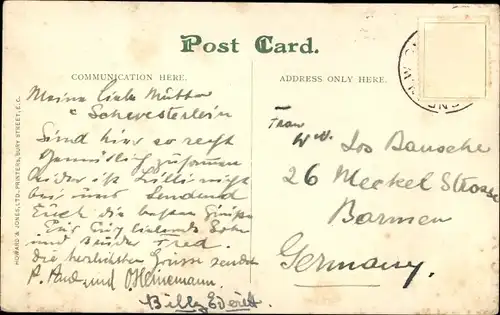 Post Card.
COMMUNICATION HERE.
ADDRESS ONLY HERE.
HOWARD & JONES, LTD., PRINTERS, BURY STREET, E.C.
Meine liebe Mutter
& Schwesterlein
Sind hier so recht
gemütlich zusammen
leider ist Lilli nicht
bei uns Sendend
Euch die besten Grüße
Euer Euch liebender Sohn
und Bruder Fred.
die herzlichsten Grüsse senden
P. und O. Heinemann.
Billy
Frau
Ww. Jos Bausche
26 Meckel Strasse
Barmen
Germany.